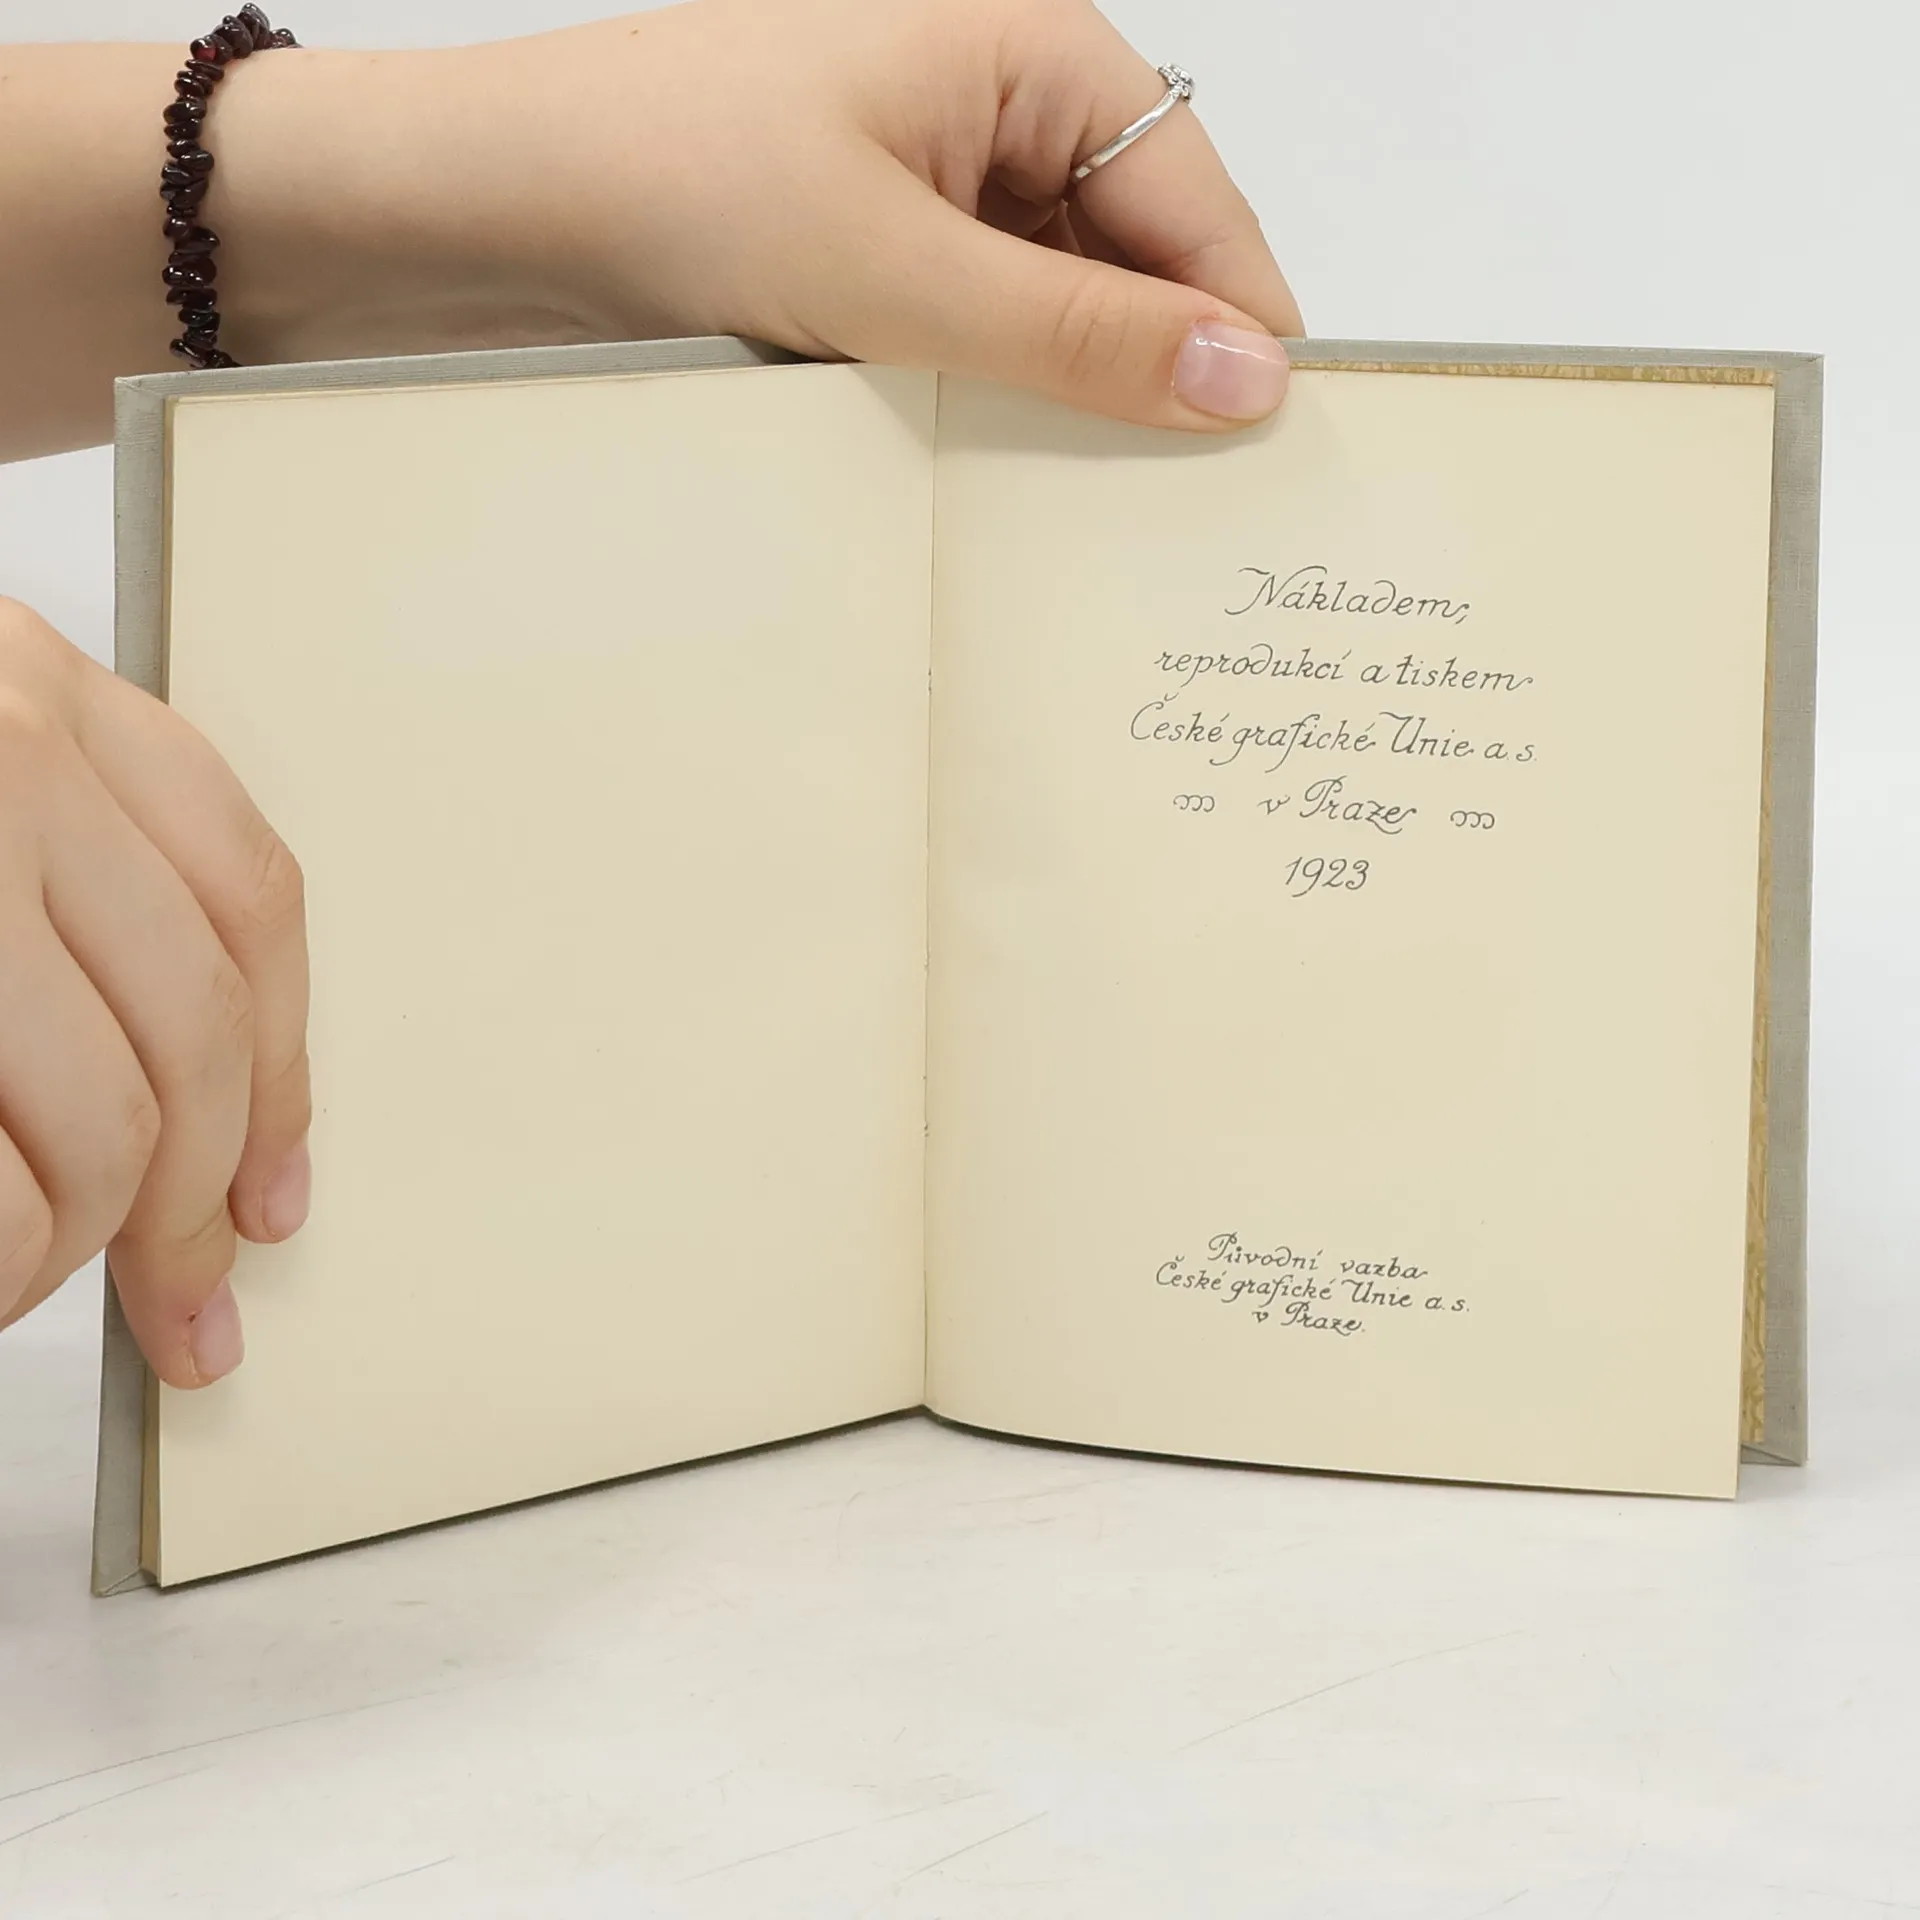 Nákladem,
reprodukcí a tiskem
České grafické Unie a. s.
v Praze
1923
Původní vazba
České grafické Unie a. s.
v Praze.